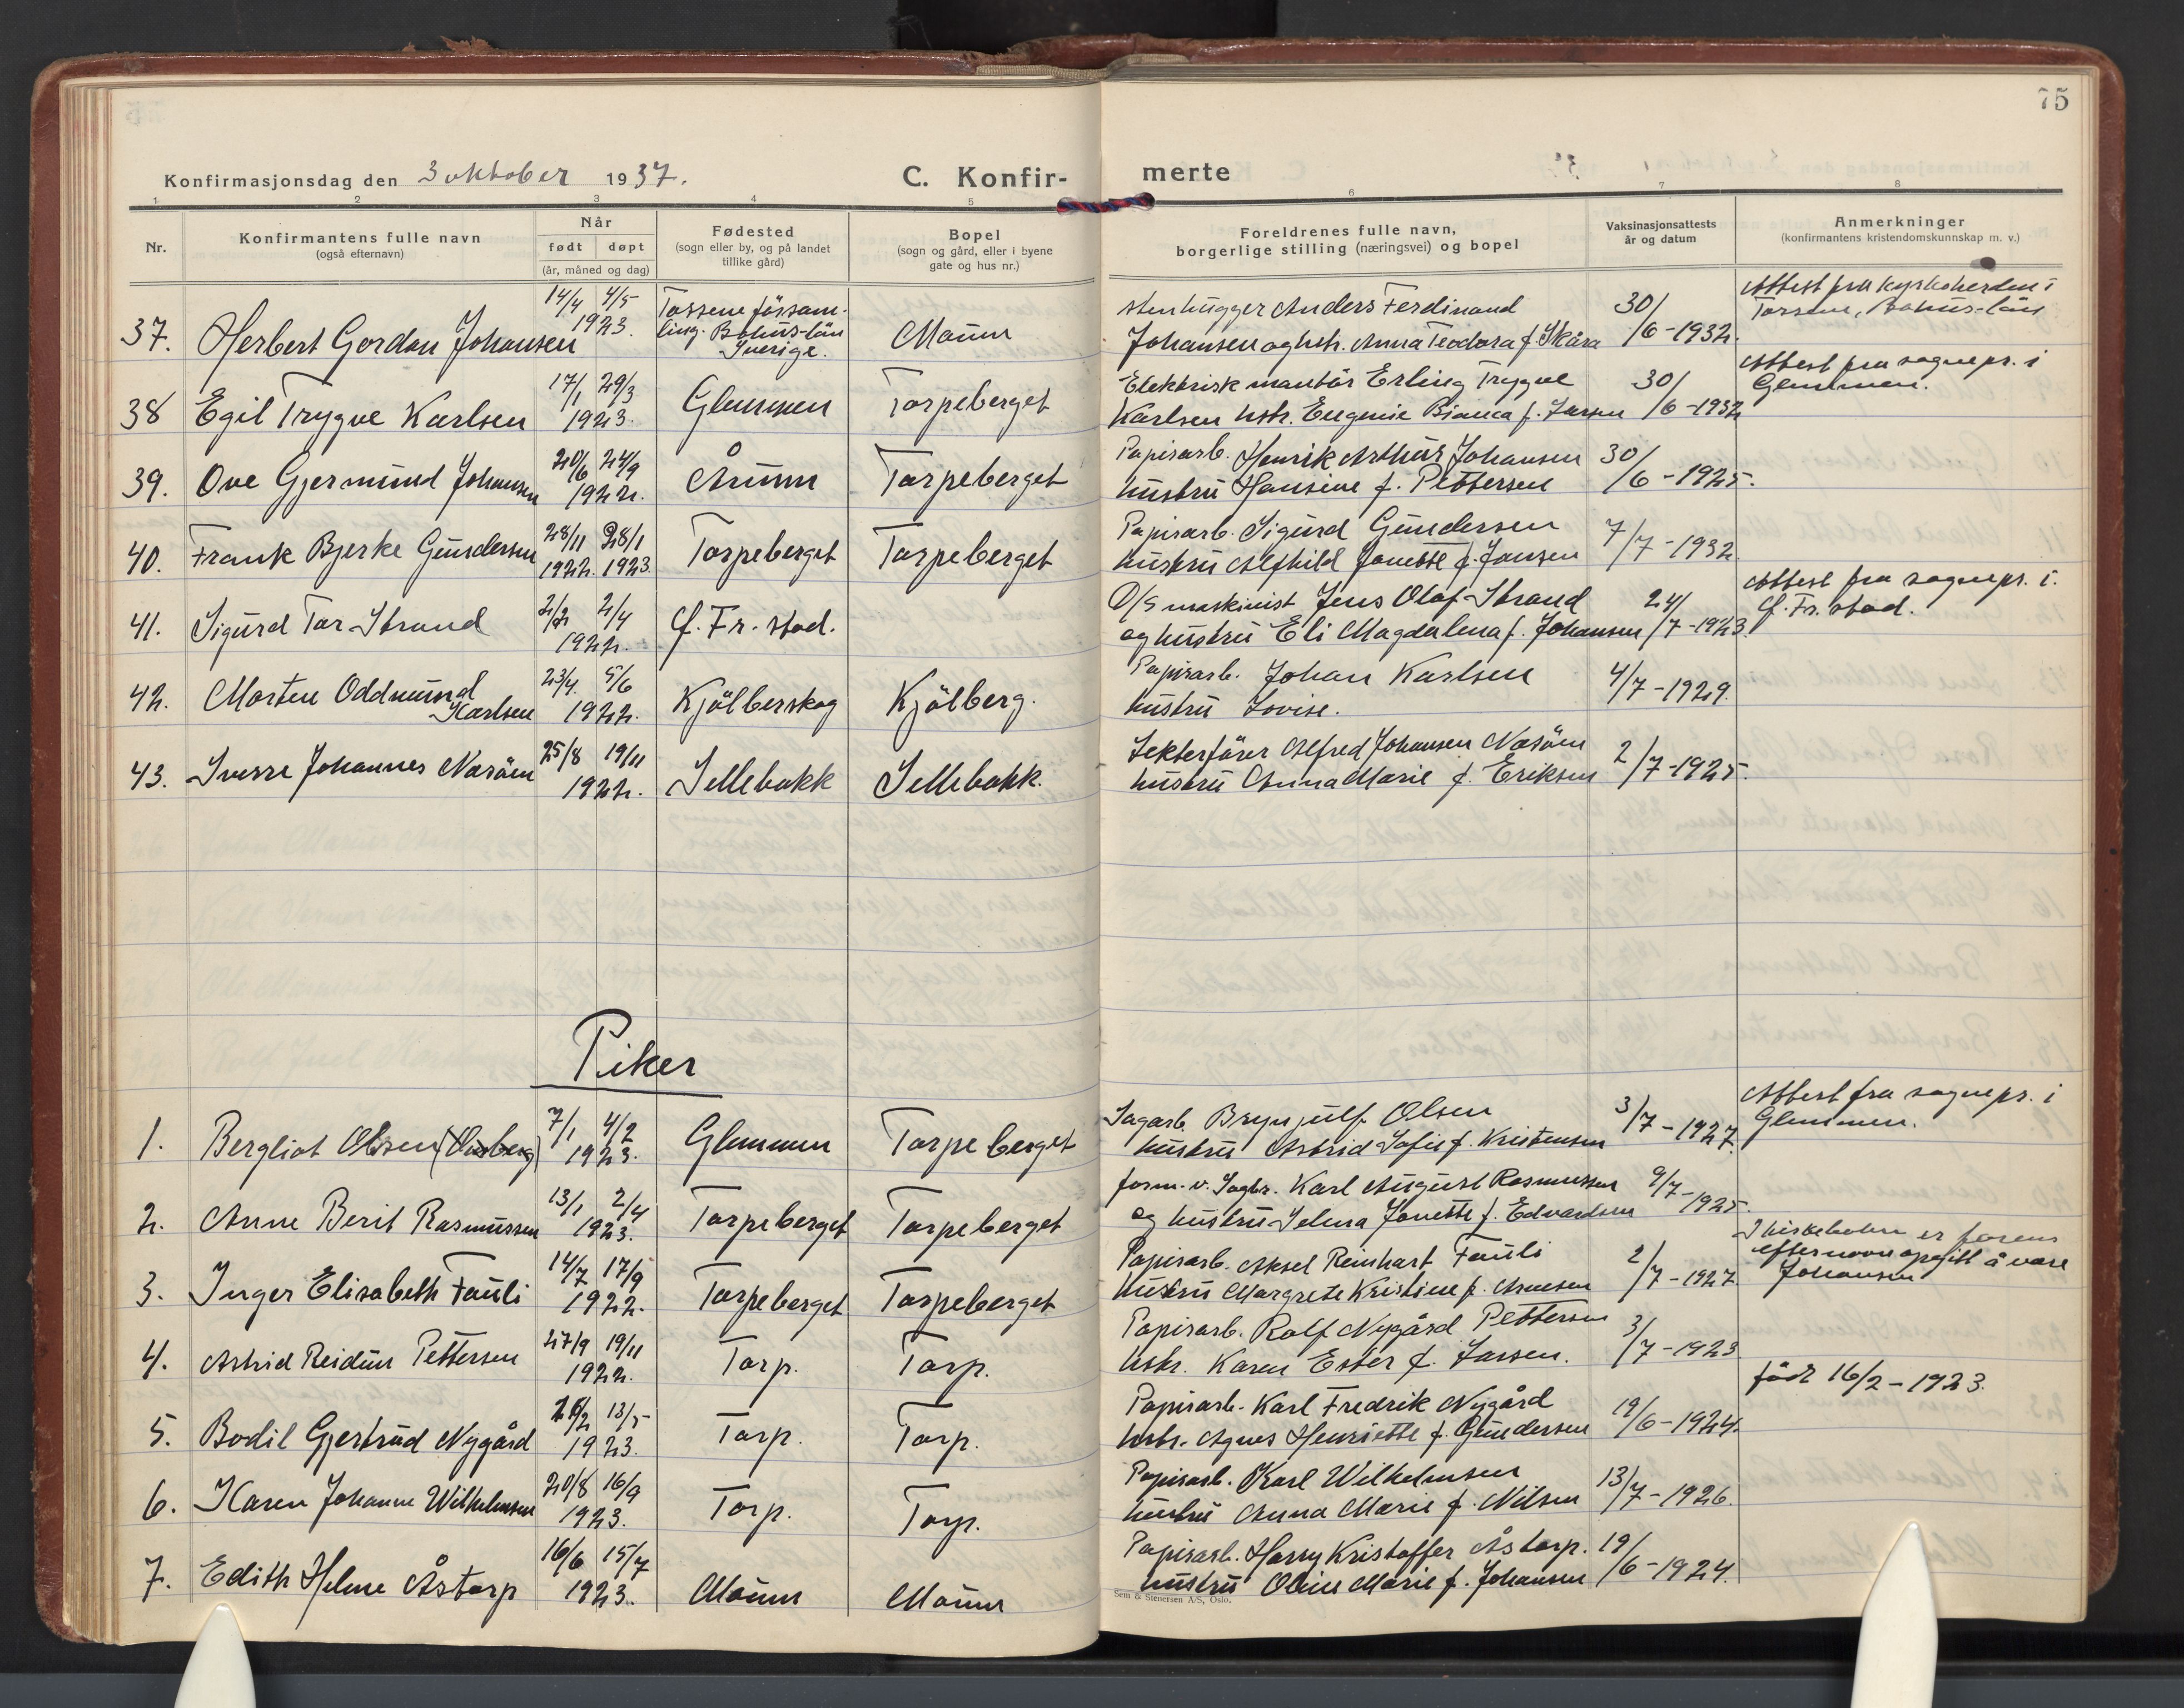 75
Konfirmasjonsdag den 3 oktober 1937.
C. Konfir-
merte
1 2 3 4 5 6 7 8
Nr.
Konfirmantens fulle navn
(også efternavn)
Når
født døpt
(år, måned og dag)
Fødested
(sogn eller by, og på landet
tillike gård)
Bopel
(sogn og gård, eller i byene
gate og hus nr.)
Foreldrenes fulle navn,
borgerlige stilling (næringsvei) og bopel
Vaksinasjonsattests
år og datum
Anmerkninger
(konfirmantens kristendomskunnskap m. v.)
37. Herbert Gordon Johansen 14/4 4/5 1923. Tossene församling. Bohus-län Sverige. Moum
Stenhugger Anders Ferdinand
Johansen og hstr. Anna Teodora f. Skåra 30/6-1932.
Attest fra kyrkoherden i
Torsene, Bohus-län
38 Egil Trygve Karlsen 17/1 29/3 1923. Glemmen Torpeberget
Elektrisk montör Erling Trygve
Karlsen hstr. Eugenie Bianca f. Larsen 30/6-1932
Attest fra sognepr. i
Glemmen.
39. Ove Gjermund Johansen 20/6 24/9 1922. Årum Torpeberget
Papirarb. Henrik Arthur Johansen
hustru Hansine f. Pettersen 30/6-1925.
40. Frank Bjerke Gundersen 28/11 1922. 28/1 1923. Torpeberget Torpeberget
Papirarb. Sigurd Gundersen
hustru Alfhild Jonette f. Jansen 7/7-1932.
41. Sigurd Tor Strand 2/2 2/4 1922. Gl. Fr. stad.
D/S maskinist Jens Olaf Strand
og hustru Eli Magdalena f. Johansen 24/7-1923.
Attest fra sognepr. i.
Gl. Fr. stad.
42. Morten Oddmund Karlsen 23/4. 5/6 1922. Kjölberskog Kjölberg.
Papirarb. Johan Karlsen
hustru Lovise. 4/7-1929.
43. Sverre Johannes Nosöen 25/8 19/11 1922. Sellebakk Sellebakk.
Lekterförer Alfred Johansen Nosöen
hustru Anna Marie f. Eriksen 2/7-1925.
Piker
1. Bergliot Olsen (Ousberg) 7/1 4/2 1923. Glemmen Torpeberget
Sagarb. Brynjulf Olsen
hustru Astrid Sofie f. Kristensen 3/7-1927.
Attest fra sognepr. i
Glemmen.
2. Anne Berit Rasmussen 13/1 2/4 1923. Torpeberget Torpeberget
form. v. Sagbr. Karl August Rasmussen
og hustru Selma Jonette f. Edvardsen 9/7-1925.
3. Inger Elisabeth Fauli 14/7 17/9 1922. Torpeberget Torpeberget
Papirarb. Aksel Reinhart Fauli
hustru Margrete Kristine f. Arnesen 2/7-1927
I kirkeboken er farens
efternavn opgitt å være
Johansen
4. Astrid Reidun Pettersen 27/9 19/11 1922. Torp. Torp.
Papirarb. Rolf Nygård Pettersen
hstr. Karen Ester f. Larsen. 3/7-1923.
5. Bodil Gjertrud Nygård 26/2 13/5 1923. Torp. Torp.
Papirarb. Karl Fredrik Nygård
hstr. Agnes Henriette f. Gundersen 19/6-1924.
född 16/2-1923.
6. Karen Johanne Wilhelmsen 20/8 16/9 1923. Torp. Torp.
Papirarb. Karl Wilhelmsen
hustru Anna Marie f. Nilsen 13/7-1926.
7. Edith Helene Åstorp 16/6 15/7 1923. Moum Moum
Papirarb. Harry Kristoffer Åstorp.
hustru Oline Marie f. Johansen 19/6-1924.
Sem & Stenersen A/S, Oslo.